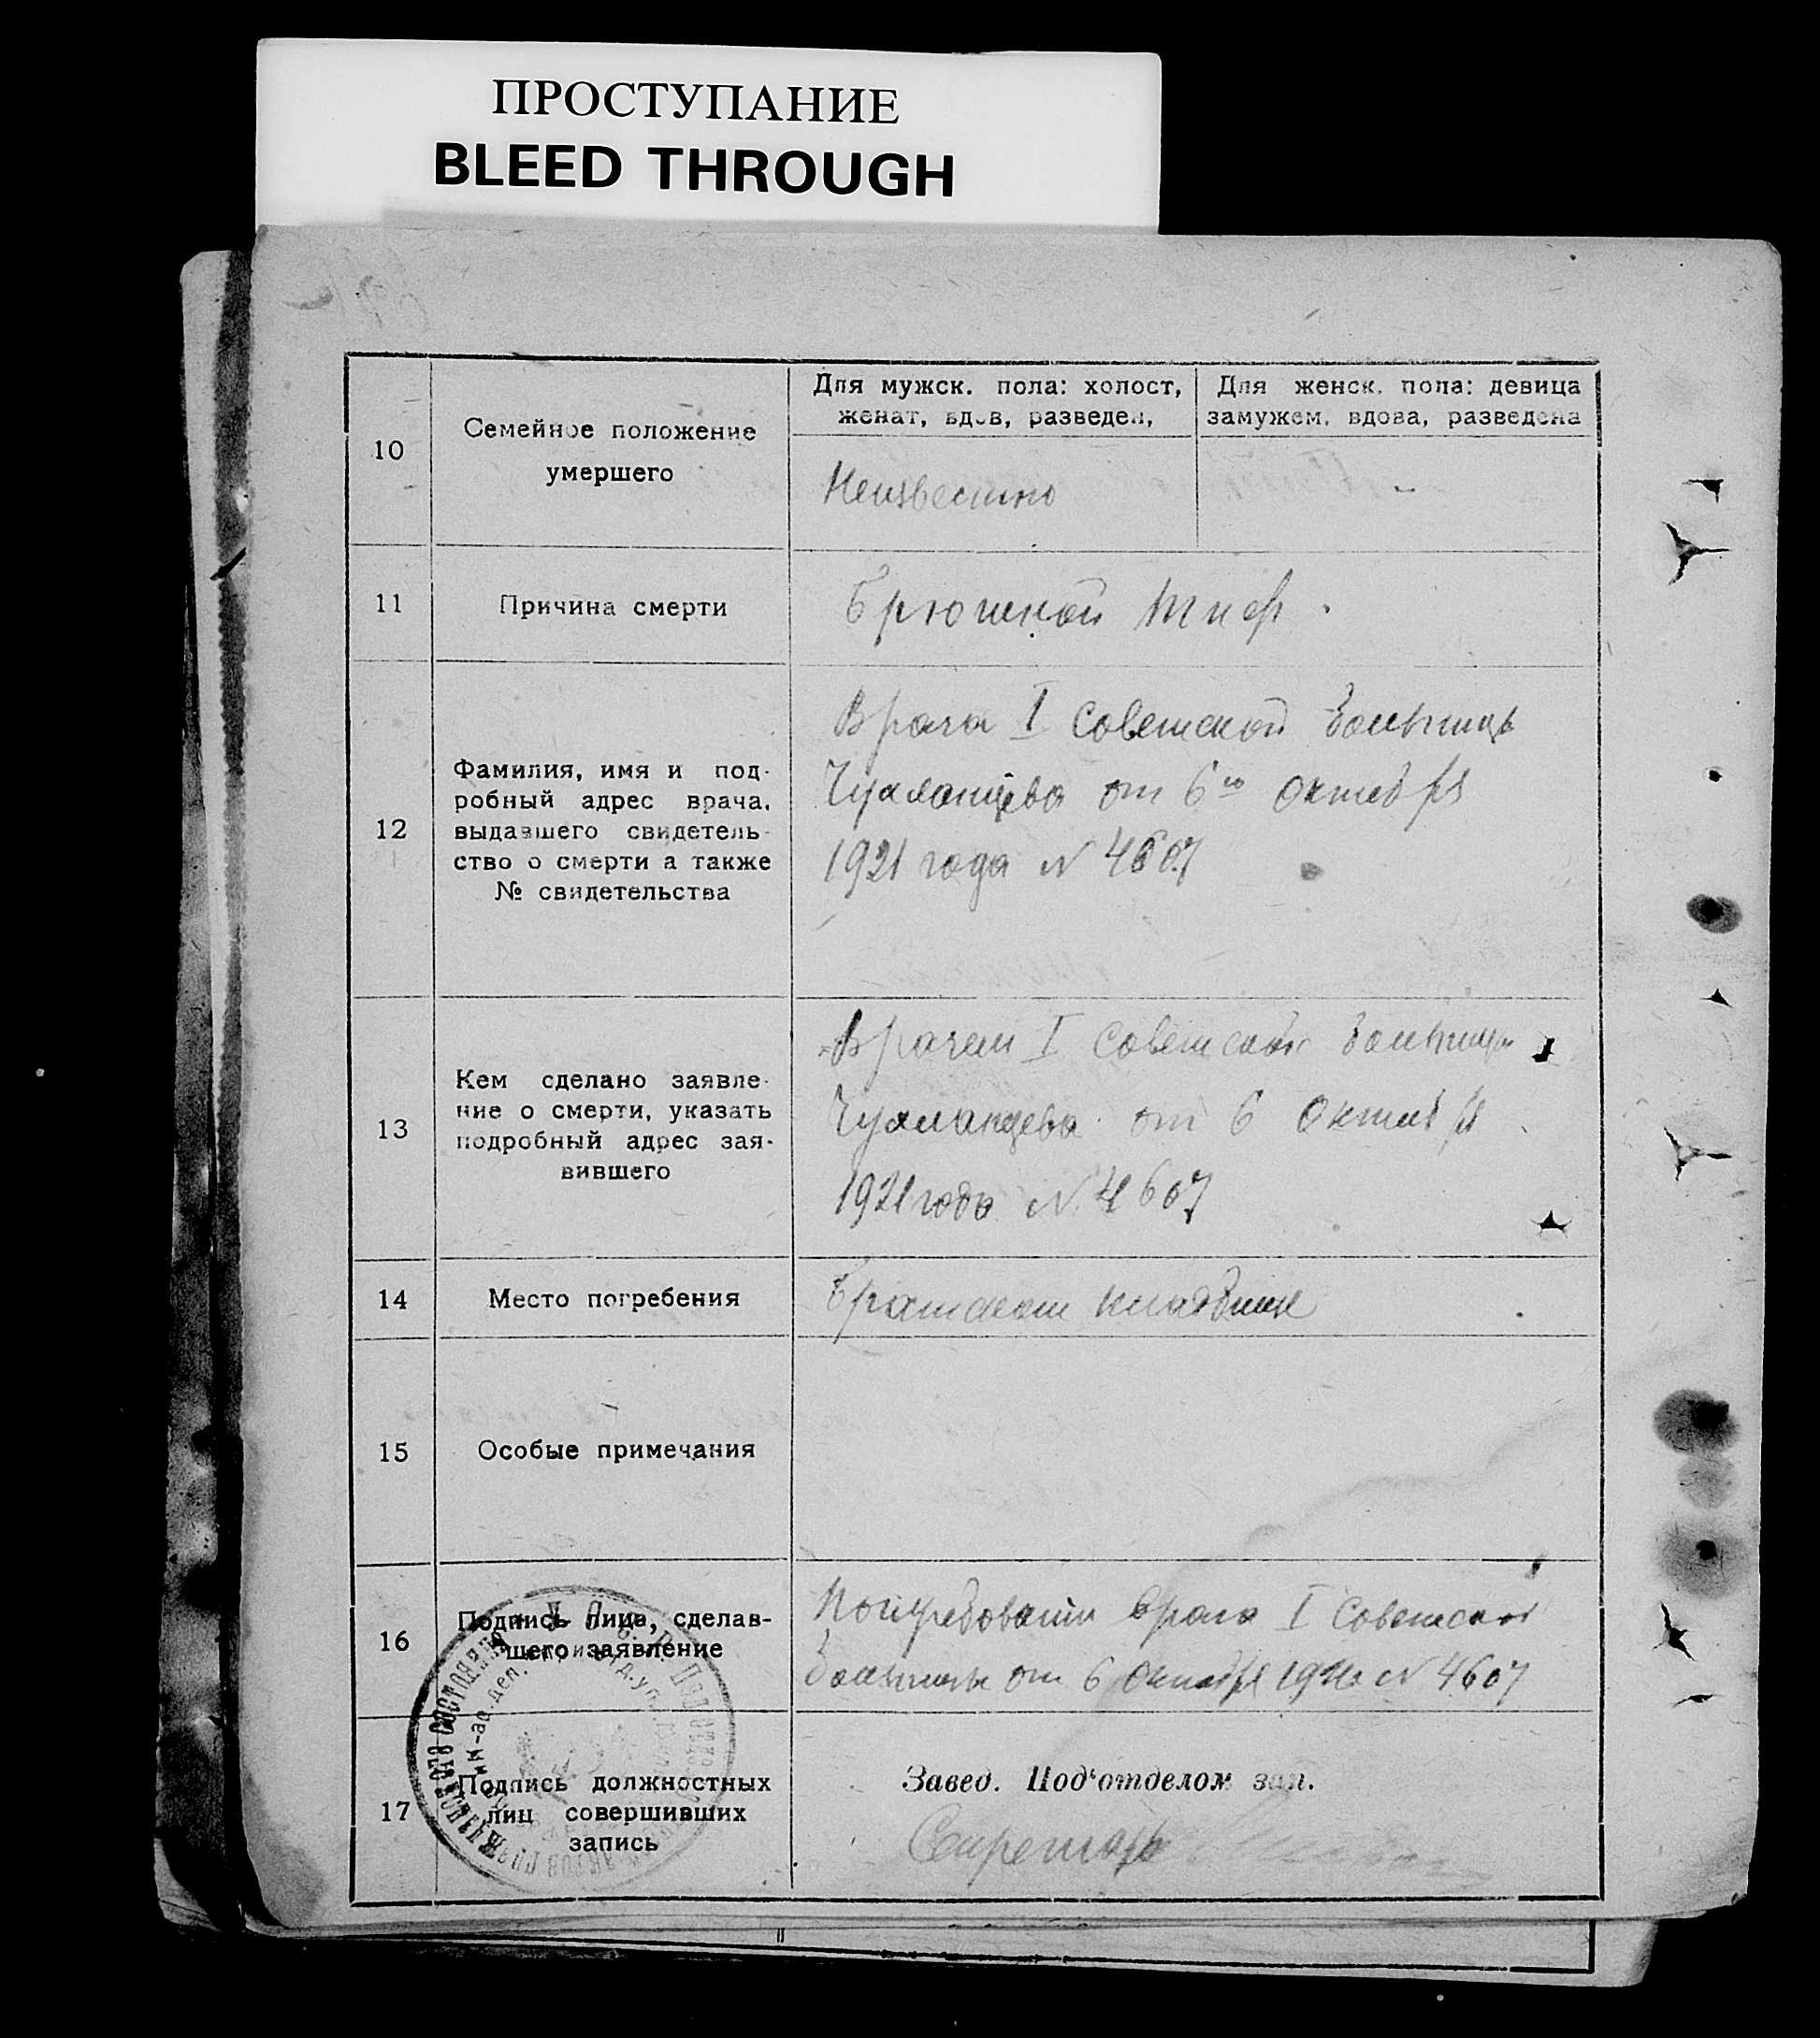 ПРОСТУПАНИЕ
BLEED THROUGH
10
Семейное положение
умершего
Для мужск. пола: холост,
женат, вдов, разведен,
Для женск. пола: девица
замужем, вдова, разведена
Неизвестно
-
11
Причина смерти
Брюшной тиф
12
Фамилия, имя и под-
робный адрес врача,
выдавшего свидетель-
ство о смерти а также
№ свидетельства
Врача I советской больницы
Чухланцева от 6го октября
1921 года N 4607
13
Кем сделано заявле-
ние о смерти, указать
подробный адрес зая-
вившего
Врачем I советской больницы
Чухланцева от 6 октября
1921 года N 4607
14
Место погребения
Братском кладбище
15
Особые примечания
16
Подпись лица, сделав-
шего заявление
врача I Советской
больницы от 6 октября 1921г N 4607
17
Подпись должностных
лиц совершивших
запись
Завед. Под'отделом зап.
Секретарь